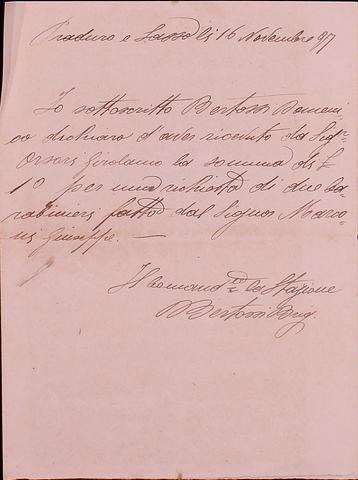 Praduro e Sasso li 16 Novembre 97
Io sottoscritto Bertossi Domeni=
co dichiaro d'aver ricevuto da Sigr.
Orsoni Girolamo la somma di £
10 per una richiesta di due ca=
rabinieri fatta dal Signor Marco=
ni Giuseppe. —
Il Comand.te la Stazione
Bertossi Brig.